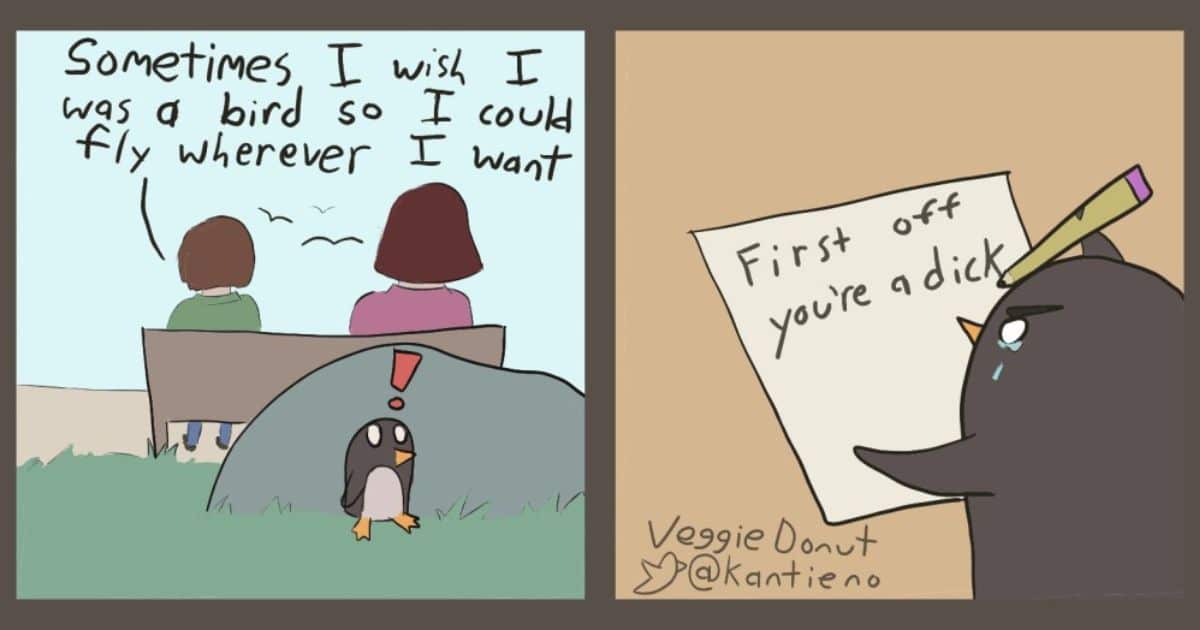 Sometimes I wish I
was a bird so I could
fly wherever I want
!
First off
you're a dick
Veggie Donut
@kantieno